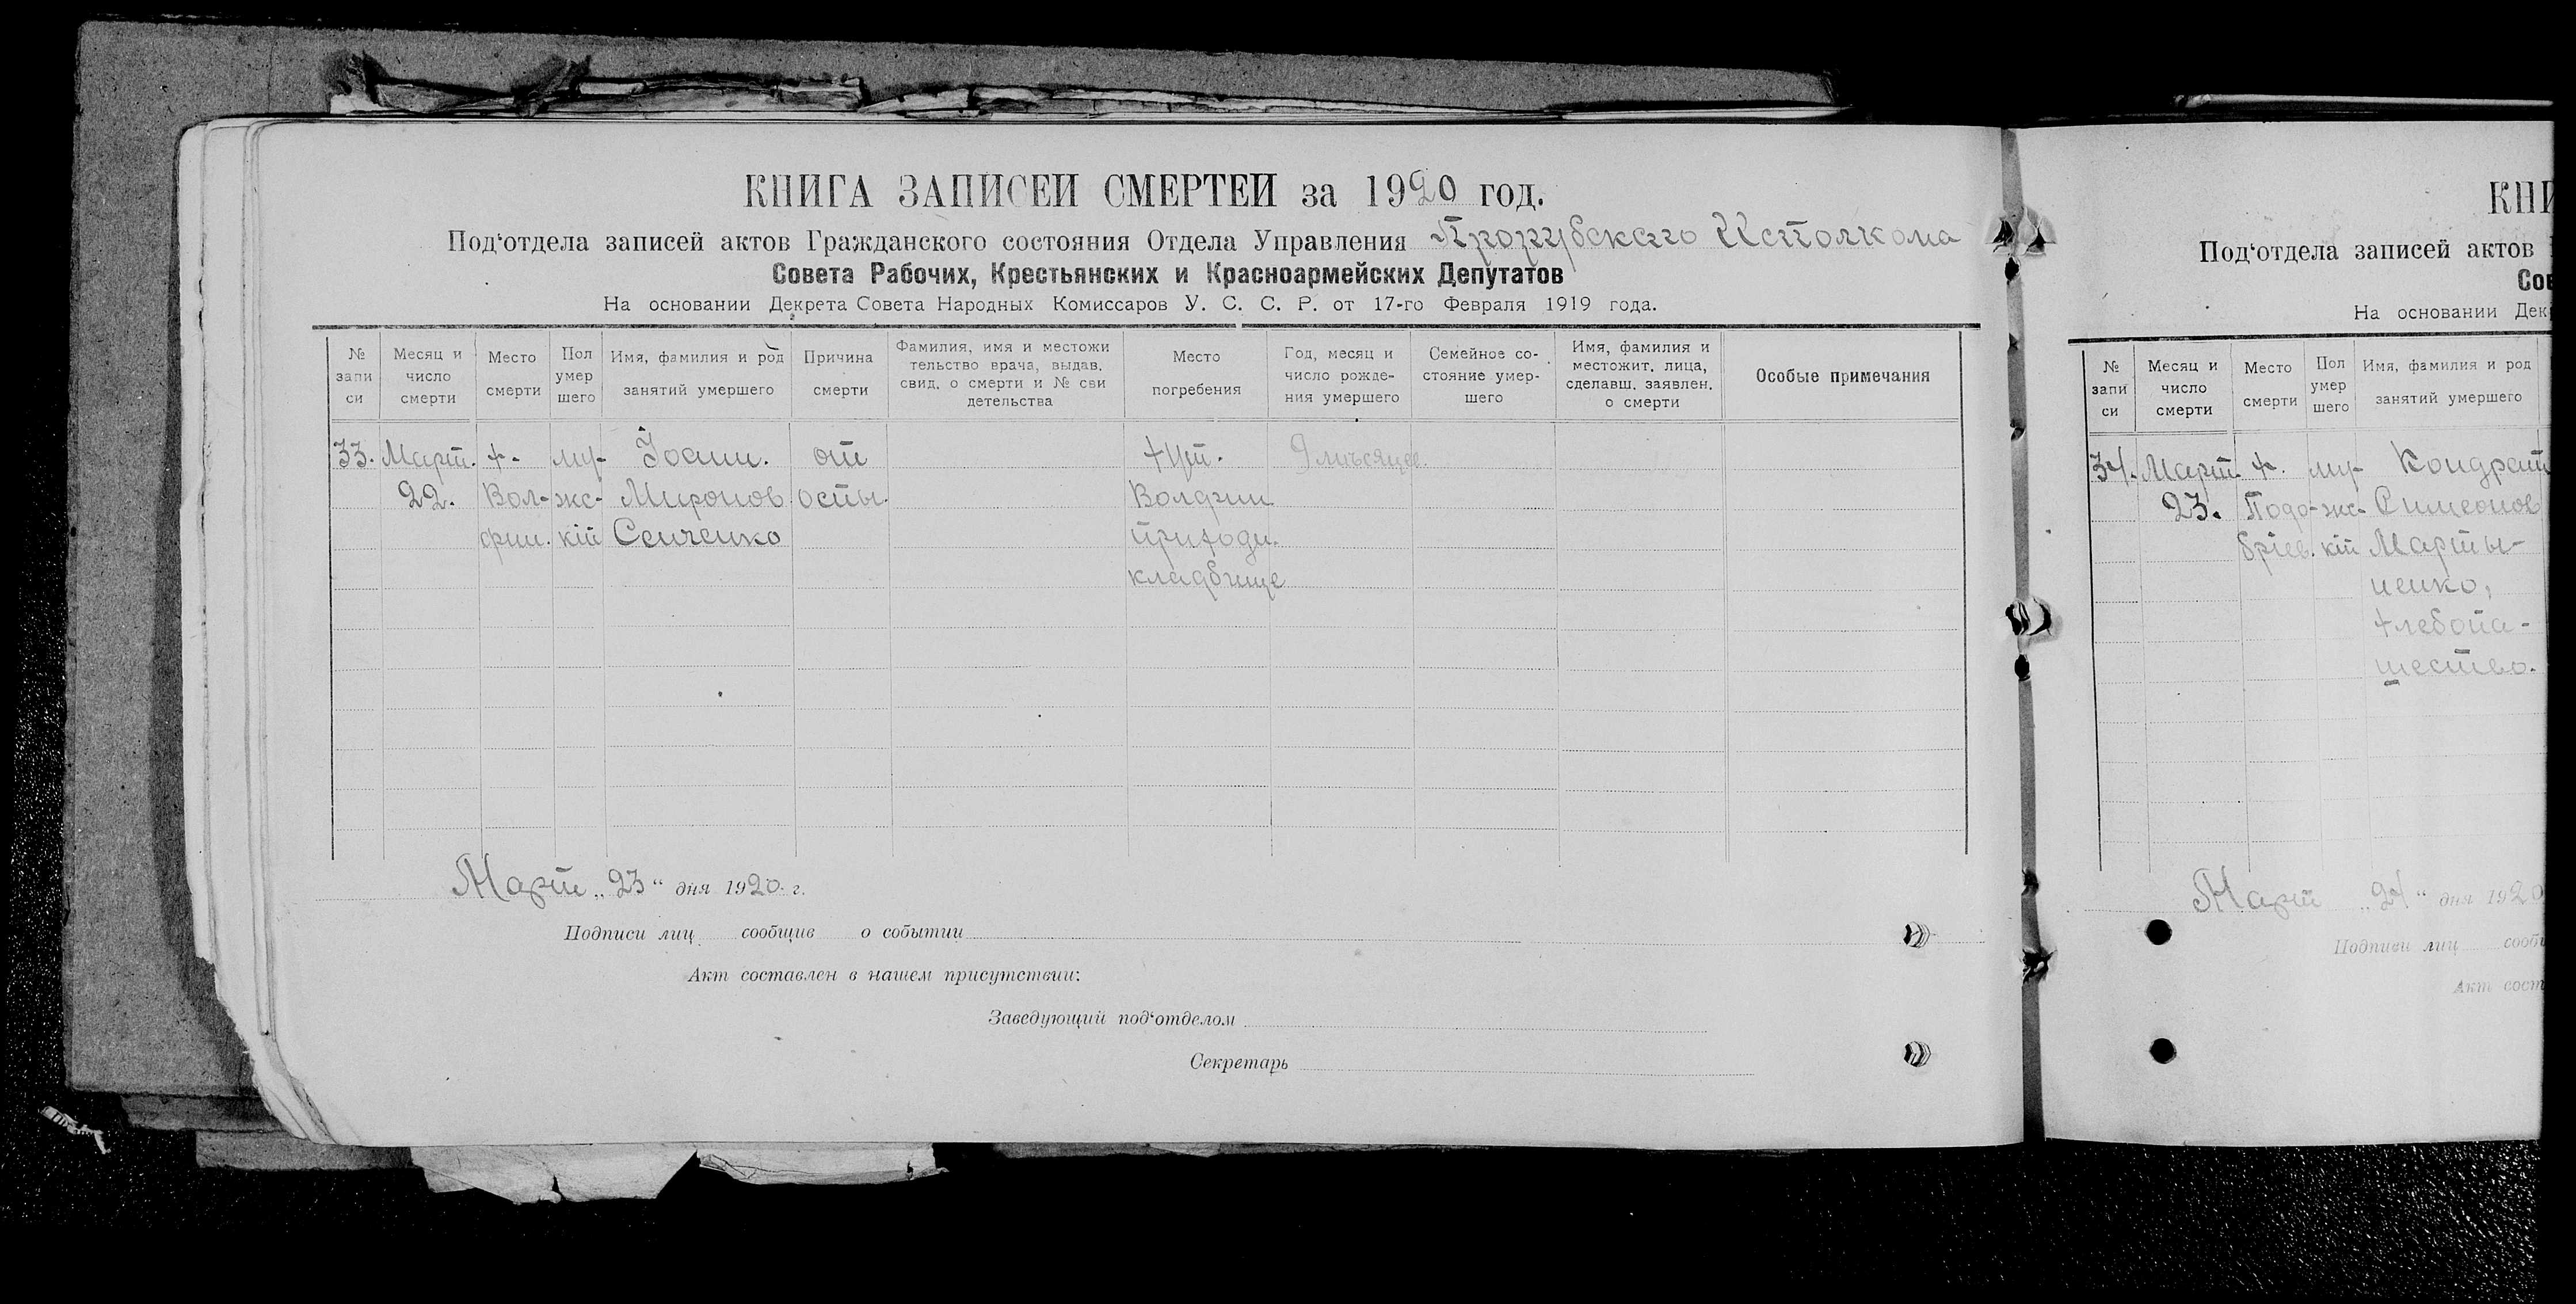 КНИГА ЗАПИСЕЙ СМЕРТЕЙ за 1920 год.
Под‘отдела записей актов Гражданского состояния Отдела Управления Прорубского Исполкома
Совета Рабочих, Крестьянских и Красноармейских Депутатов
На основании Декрета Совета Народных Комиссаров У. С. С. Р. от 17-го Февраля 1919 года.
№ запи си
Месяц и число смерти
Место смерти
Пол умер шего
Имя, фамилия и род занятий умершего
Причина смерти
Фамилия, имя и местожи тельство врача, выдав. свид. о смерти и № сви детельства
Место погребения
Год, месяц и число рожде- ния умершего
Семейное со- стояние умер- шего
Имя, фамилия и местожит. лица, сделавш. заявлен. о смерти
Особые примечания
33. Март. х. му- Іоанн. от хут. 9 мѣсяцев.
22. Вол- жс- Миронов осты. Волфин
фин. кій Сенченко приходн.
кладбище
Март „23“ дня 1920 г.
Подписи лиц сообщив о событии
Акт составлен в нашем присутствии:
Заведующий под‘отделом
Секретарь
КНИ
Под‘отдела записей актов
Сов
На основании Дек
№ запи си
Месяц и число смерти
Место смерти
Пол умер шего
Имя, фамилия и род занятий умершего
34. Март. х. му- Кондрат
23. Подо- жс- Симеонов
бріев. кій Марты-
ненко,
хлебопа-
шество.
Март „24“ дня 1920
Подписи лиц сообщ
Акт сост